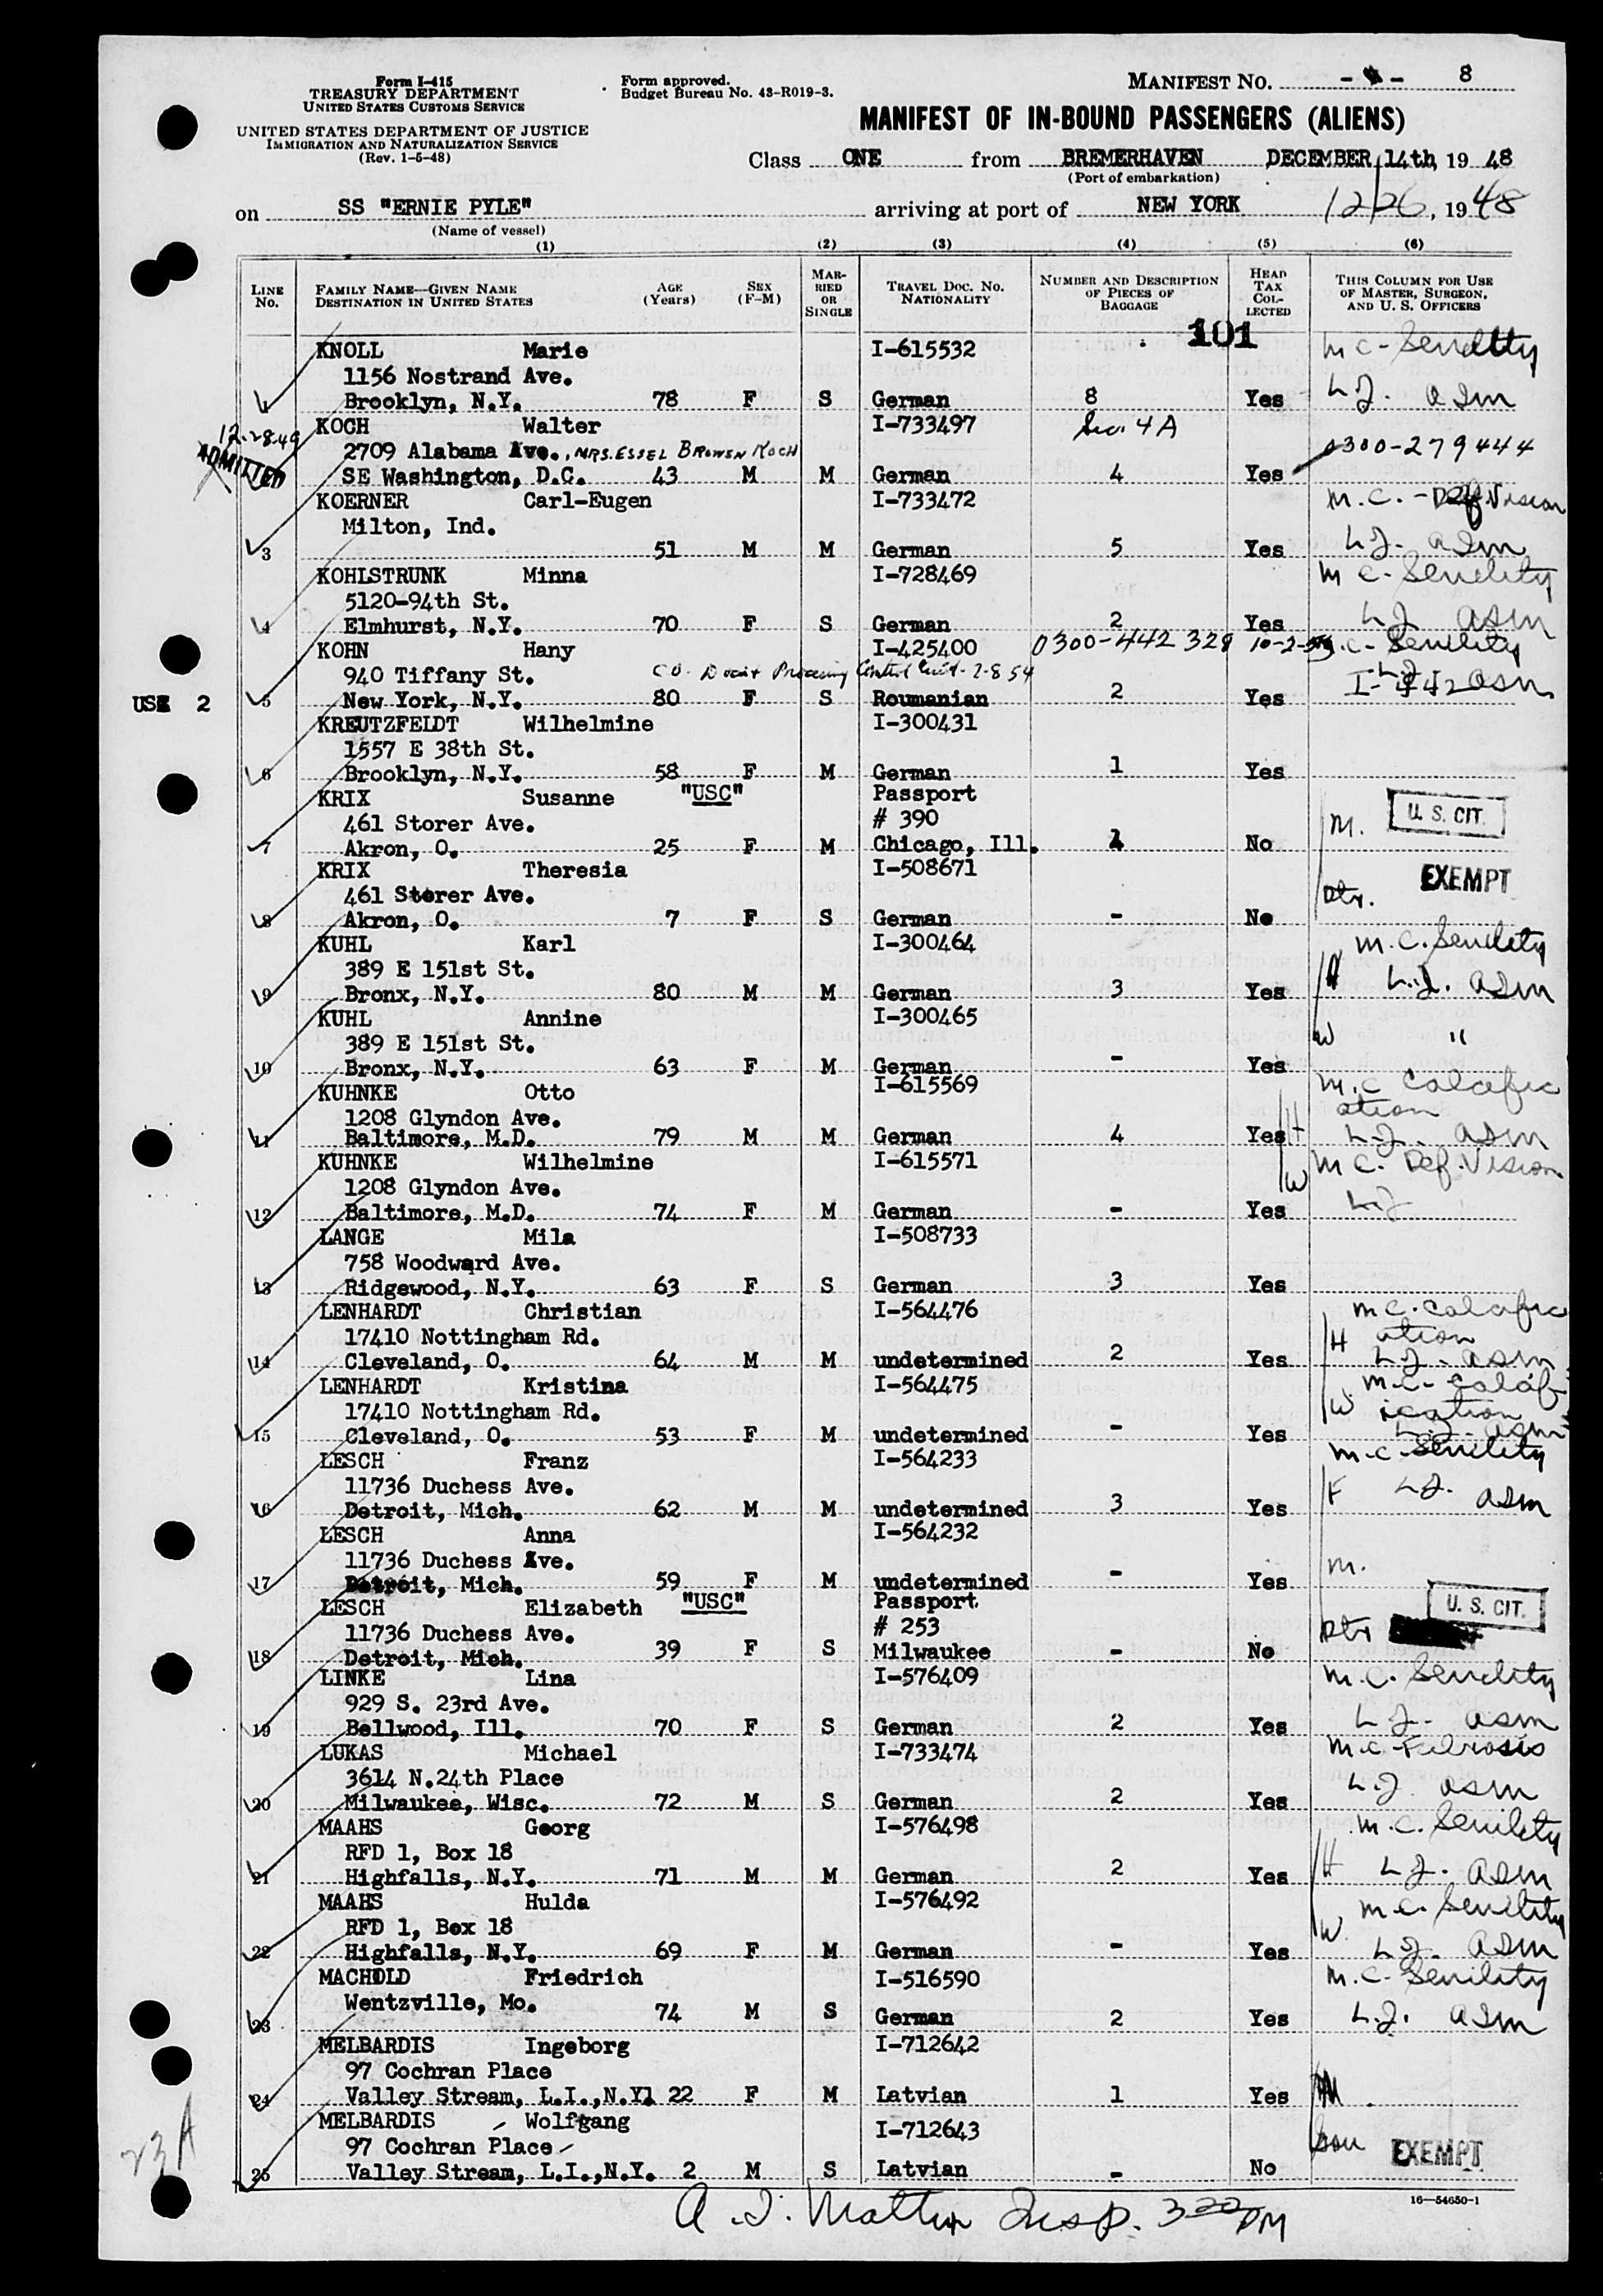 Form I-415
TREASURY DEPARTMENT
UNITED STATES CUSTOMS SERVICE
UNITED STATES DEPARTMENT OF JUSTICE
IMMIGRATION AND NATURALIZATION SERVICE
(Rev. 1-5-48)
Form approved.
Budget Bureau No. 43-R019-3.
MANIFEST NO. 8
MANIFEST OF IN-BOUND PASSENGERS (ALIENS)
Class ONE from BREMERHAVEN DECEMBER, 14th, 19 48
(Port of embarkation)
on SS "ERNIE PYLE" arriving at port of NEW YORK 12/26, 19 48
(Name of vessel)
(1) (2) (3) (4) (5) (6)
LINE No. FAMILY NAME—GIVEN NAME DESTINATION IN UNITED STATES AGE (Years) SEX (F-M) MARRIED OR SINGLE TRAVEL DOC. NO. NATIONALITY NUMBER AND DESCRIPTION OF PIECES OF BAGGAGE HEAD TAX COLLECTED THIS COLUMN FOR USE OF MASTER, SURGEON, AND U. S. OFFICERS
101
KNOLL Marie I-615532 mc-Senility
1156 Nostrand Ave.
1 Brooklyn, N.Y. 78 F S German 8 Yes L.J. asm
12-28-49 KOCH Walter I-733497 Sec. 4A
ADMITTED 2709 Alabama Ave., MRS. ESSEL BROWEN KOCH 0300-279444
SE Washington, D.C. 43 M M German 4 Yes
KOERNER Carl-Eugen I-733472 m.c.-Def. Vision
Milton, Ind.
3 51 M M German 5 Yes L.J. asm
KOHLSTRUNK Minna I-728469 mc-Senility
5120-94th St.
4 Elmhurst, N.Y. 70 F S German 2 Yes L.J. asm
KOHN Hany I-425400 0300-442 328 10-2-53 m.c-Senility
940 Tiffany St. C.O. Docit Processing Control Unit-2-8 54 L.J. asm
USE 2 5 New York, N.Y. 80 F S Roumanian 2 Yes I-442
KREUTZFELDT Wilhelmine I-300431
1557 E 38th St.
6 Brooklyn, N.Y. 58 F M German 1 Yes
KRIX Susanne "USC" Passport
461 Storer Ave. # 390 M. U. S. CIT.
7 Akron, O. 25 F M Chicago, Ill. No
KRIX Theresia I-508671 EXEMPT
461 Storer Ave. Dtr.
8 Akron, O. 7 F S German - No
KUHL Karl I-300464 m.c. Senility
389 E 151st St. H L.J. asm
9 Bronx, N.Y. 80 M M German 3 Yes
KUHL Annine I-300465
389 E 151st St. W "
10 Bronx, N.Y. 63 F M German - Yes
KUHNKE Otto I-615569 m.c calcific
1208 Glyndon Ave. ation
11 Baltimore, M.D. 79 M M German 4 Yes H L.J. asm
KUHNKE Wilhelmine I-615571 mc. Def. Vision
1208 Glyndon Ave. W
12 Baltimore, M.D. 74 F M German - Yes L.J
LANGE Mila I-508733
758 Woodward Ave.
13 Ridgewood, N.Y. 63 F S German 3 Yes
LENHARDT Christian I-564476 mc. calcific
17410 Nottingham Rd. H ation
14 Cleveland, O. 64 M M undetermined 2 Yes L.J. asm
LENHARDT Kristina I-564475 m.c- calcif
17410 Nottingham Rd. W ication
15 Cleveland, O. 53 F M undetermined - Yes L.J. asm
LESCH Franz I-564233 m.c-Senility
11736 Duchess Ave. F L.J. asm
16 Detroit, Mich. 62 M M undetermined 3 Yes
LESCH Anna I-564232
11736 Duchess Ave. m.
17 Detroit, Mich. 59 F M undetermined - Yes
LESCH Elizabeth "USC" Passport U. S. CIT.
11736 Duchess Ave. # 253 Dtr
18 Detroit, Mich. 39 F S Milwaukee - No
LINKE Lina I-576409 m.c. Senility
929 S. 23rd Ave.
19 Bellwood, Ill. 70 F S German 2 Yes L.J. asm
LUKAS Michael I-733474 m.c-Fibrosis
3614 N.24th Place
20 Milwaukee, Wisc. 72 M S German 2 Yes L.J asm
MAAHS Georg I-576498 m.c. Senility
RFD 1, Box 18
21 Highfalls, N.Y. 71 M M German 2 Yes H L.J. asm
MAAHS Hulda I-576492 mc. Senility
RFD 1, Box 18 W
22 Highfalls, N.Y. 69 F M German - Yes L.J. asm
MACHOLD Friedrich I-516590 m.c-Senility
Wentzville, Mo.
23 74 M S German 2 Yes L.J. asm
MELBARDIS Ingeborg I-712642
97 Cochran Place
24 Valley Stream, L.I.,N.Y. 22 F M Latvian 1 Yes M.
MELBARDIS Wolfgang I-712643
97 Cochran Place Son EXEMPT
25 Valley Stream, L.I.,N.Y. 2 M S Latvian - No
23A
16—54650-1
Insp. 3 22 PM